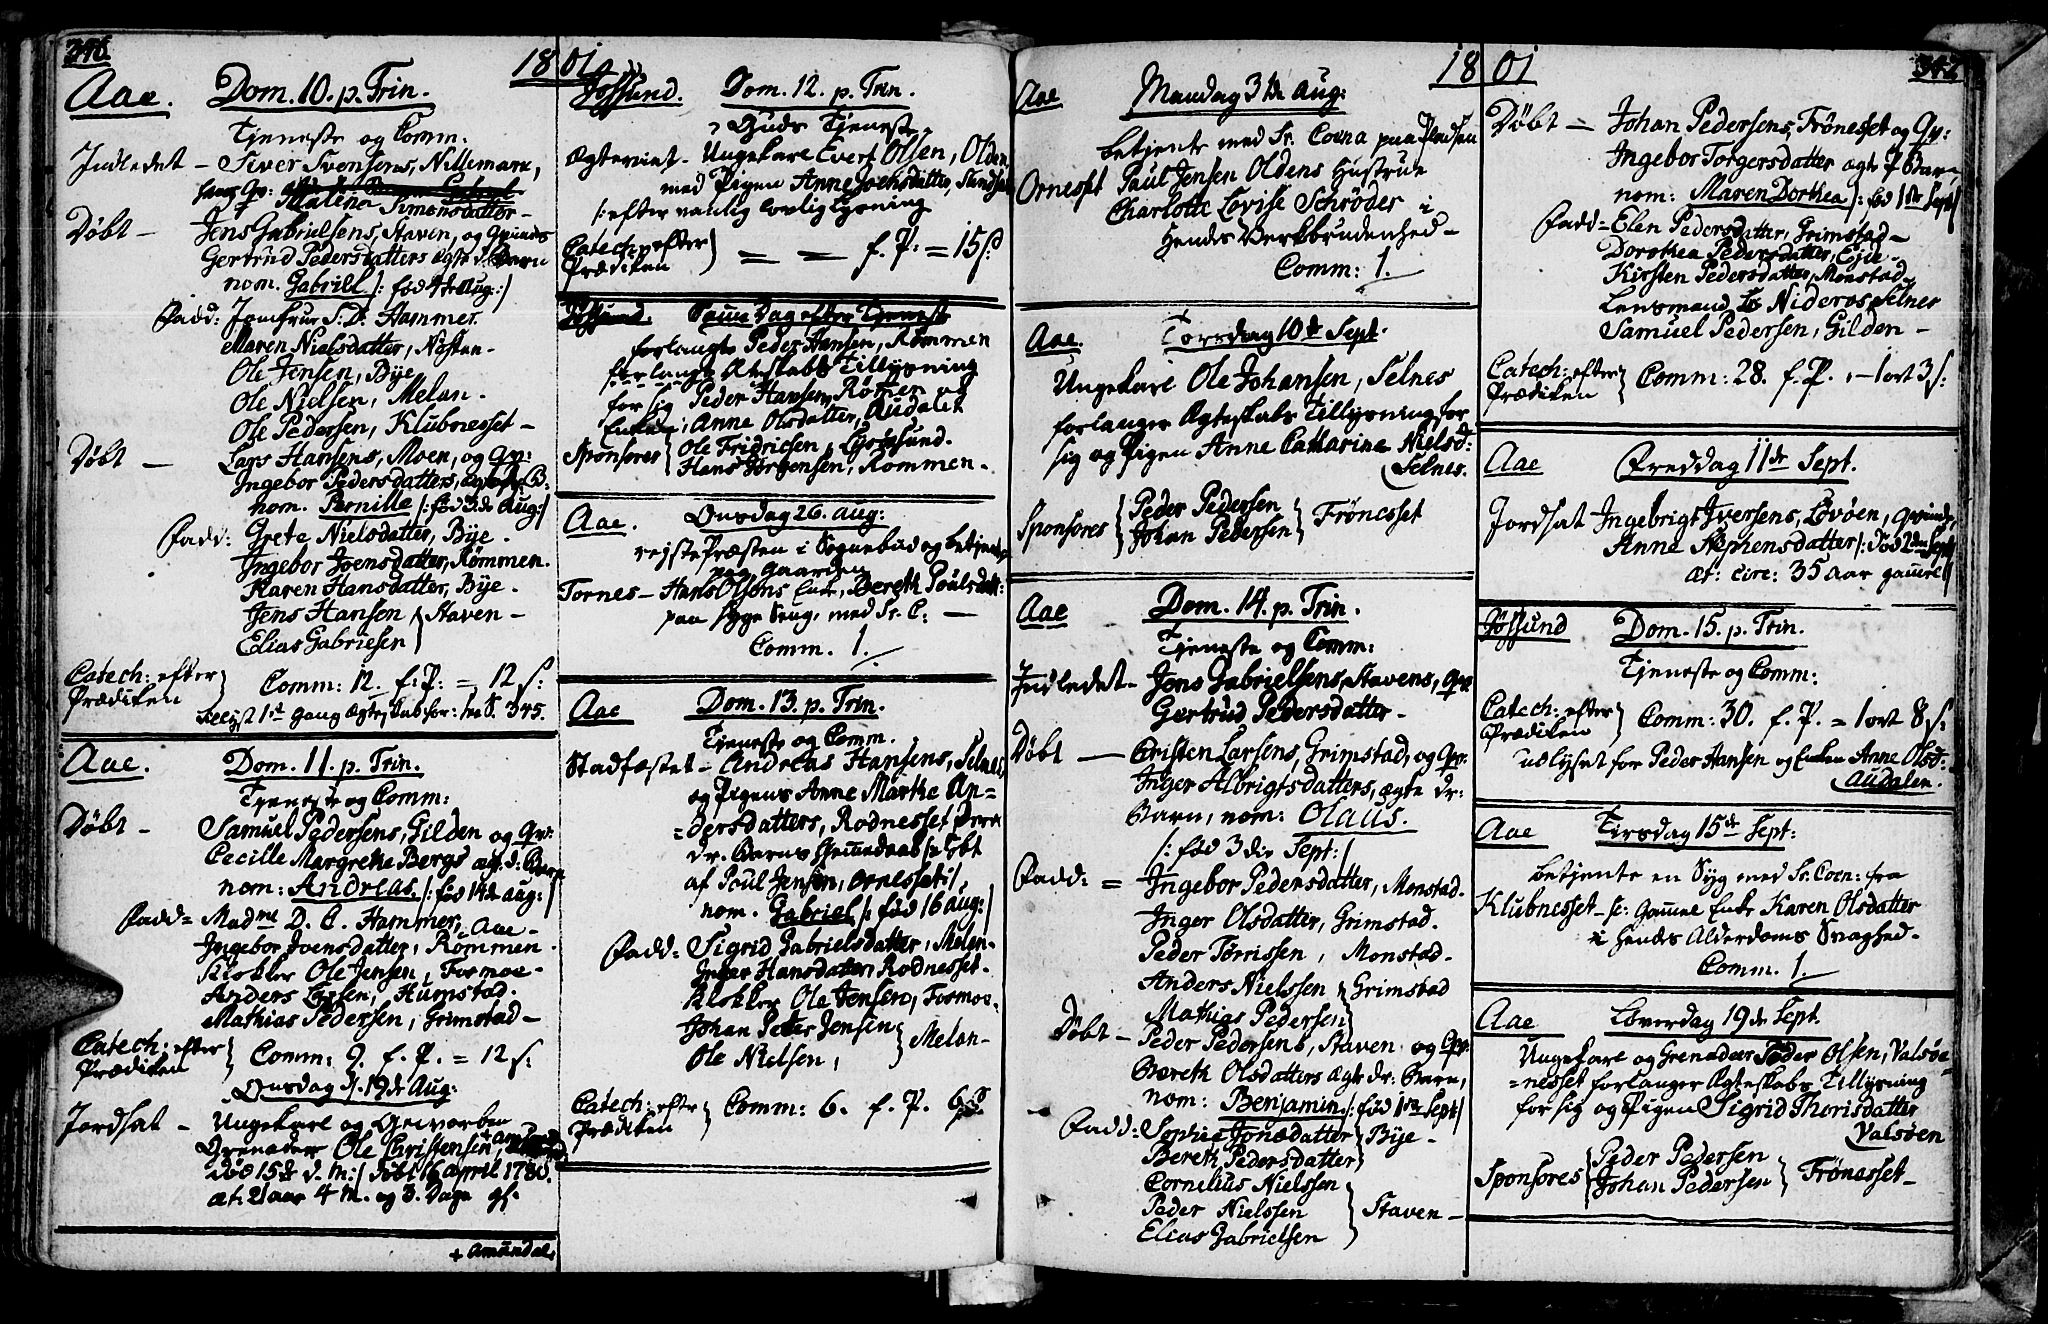 346.
18 01
Aae. Dom. 10. p. Trin.
Tjeneste og Comm.
Indledet – Siver Svensens, Nillemark,
hans Qv: Malena Simonsdatter –
Døbt – Jens Gabrielsens, Staven, og Qvinde
Gertrud Pedersdatters ægte d. Barn
nom. Gabriel /: fød 4de Aug: /
Fadd: Jomfrue S. D. Hammer.
Maren Nielsdatter, Nesten –
Ole Jensen, Bye
Ole Nielsen, Melan.
Ole Pedersen, Klubnesset –
Døbt – Lars Hansens, Moen, og Qv:
Ingebor Pedersdatters, ægte B:
nom. Pernille /: fød 3de Aug: /
Fadd: Grete Nielsdatter, Bye.
Ingebor Joensdatter, Rømmen.
Karen Hansdatter, Bye.
Jens Hansen } Staven –
Elias Gabrielsen
Catech: efter Prædiken } Comm: 12. f. P. = 12 s:
1st gang Ægteskab for: No S. 345.
Aae. Dom. 11. p. Trin.
Tjeneste og Comm:
Døbt – Samuel Pedersens, Gilden og Qv:
Cecille Margrethe Bergs ægt. d: Barn
nom: Andreas /: fød 14de Aug: /
Fadd = Madme D. C. Hammer, Aae –
Ingebor Joensdatter, Rømmen.
Klokker Ole Jensen, Formoe –
Anders Larsen, Humstad.
Mathias Pedersen, Grimstad –
Catech: efter Prædiken } Comm: 9. f. P. = 12 s:
Onsdag d. 19de Aug:
Jordsat – Ungekarl og Grenader
Ole Christensen, +
død 15de d. M: / født 16 April 1780.
æt. 21 aar 4 M. og 3. Dage gl:
+ Amundal,
Jøssund. Dom. 12. p. Trin.
Guds Tjeneste
Ægteviet – Ungekarl Evert Olsen, Olden
med Pigen Anne Jochsdatter, Sundset
/: efter vanlig lovlig Lysning
Catech: efter Prædiken } = = f. P: = 15 s:
Jøssund. Samme Dag efter Tjeneste
forlangte Peder Hansen, Rømmen
forlangte Ægteskabs Tillysning
for sig Peder Hansen Rømen og
Enken: Anne Olsdatter, Audalet
Sponsores } Ole Fridricsen, Lysøesund.
Hans Jørgensen, Rømmen –
Aae. Onsdag 26. Aug:
rejste Præsten i Sognebud og betjente
paa Gaarden
Tornes – Hans Olsens Enke, Bereth Poulsdatt:
paa Syge Seng, med Sr. C: –
Comm. 1.
Aae Dom. 13. p. Trin.
Tjeneste og Comm.
Stadfæstet – Andreas Hansens, Selnes
og Pigens Anne Marthe An=
=dersdatters, Rodnesset,
dr. Barns /: døbt
af Poul Jensen, Ornesset: /
nom. Gabriel /: fød 16 Aug: /
Fadd: Sigrid Gabrielsdatter, Melan –
Inger Hansdatter, Rodnesset.
Klokker Ole Jensen, Formoe –
Johan Peter Jensen } Melan –
Ole Nielsen,
Catech: efter Prædiken } Comm: 6. f. P. 6 s
18 01
347
Aae Mandag 31de Aug:
betjente med Sr. Coena paa Pladsen
Ornesset Paul Jensen Oldens Hustrue
Charlotte Lovise Schrøder i
Hendes Verkbrudenhed –
Comm: 1.
Aae. Torsdag 10de Sept.
Ungekarl Ole Johansen, Selnes
forlanger Ægteskabs Tillysning for
sig og Pigen Anne Catharina Nielsd:
Selnes.
Sponsores } Peder Pedersen } Frønesset
Johan Pedersen
Aae Dom. 14. p. Trin.
Tjeneste og Comm:
Indledet – Jens Gabrielsens, Stavens, Qv:
Gertrud Pedersdatter –
Døbt – Cristen Larsens, Grimstad, og Qv:
Inger Albrigtsdatters, ægte dr:
Barn, nom: Olaus.
/: fød 3die Sept: /
Fadd: = Ingebor Pedersdatter, Monstad.
Inger Olsdatter, Grimstad.
Peder Tørrissen, Monstad.
Anders Nielssen } Grimstad
Mathias Pedersen
Døbt – Peder Pedersens, Staven og Qv:
Bereth Olsdatters ægte dr: Barn,
nom: Benjamin /: fød 1ste Sept /
Fadd: Sophie Jonsdatter } Bye –
Bereth Pedersdatter
Cornelius Nielssen
Peder Nielssen } Staven –
Elias Gabrielsen
Døbt – Johan Pedersens, Frønesset og Qv:
Ingebor Torgersdatter ægte P. Barn
nom: Maren Dorthea /: fød 1ste Sept /
Fadd = Elen Pedersdatter, Grimstad –
Dorothea Pedersdatter, Eje –
Kirsten Pedersdatter, Monstad,
Lensmand Nideros Selnes
Samuel Pedersen, Gilden –
Catech: efter Prædiken } Comm: 28. f. P. – 1 ort 3 s:
Aae Freddag 11de Sept.
Jordsat Ingebrigt Iversens, Lovøen, Qvinde,
Anne Stephensdatter /: død 2den Sept
æt: circ: 35 Aar gamel /
Jøssund Dom. 15. p. Trin.
Tjeneste og Comm:
Catech: efter Prædiken } Comm: 30. f. P. = 1 ort 8 s:
udlyset for Peder Hansen og Enken Anne Olsd:
Audalen.
Aae Tirsdag 15de Sept:
betjente en Syg med Sr. Coen: fra
Klubnesset – sc: gamel Enke Karen Olsdatter
i hendes Alderdoms Svaghed –
Comm. 1.
Aae Løverdag 19de Sept.
Ungekarl og Grenadeer Peder Olsen, Valsøe=
=nesset forlanger Ægteskabs Tillysning
for sig og Pigen Sigrid Thorisdatter
Valsøen
Sponsores } Peder Pedersen } Frønesset –
Johan Pedersen